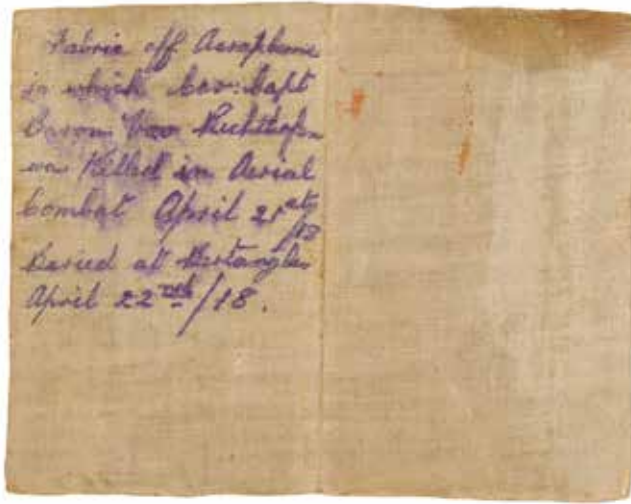 Fabric off Aeroplane
in which Cav: Capt
Baron Von Richthofen
was Killed in Aerial
combat April 21st
/18
Buried at Bertangles
April 22nd/18.